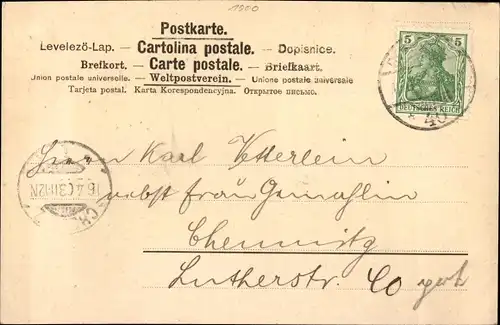 1900
Postkarte.
Levelező-Lap. — Cartolina postale. — Dopisnice.
Brefkort. — Carte postale. — Briefkaart.
Union postale universelle. — Weltpostverein. — Unione postale universale
Tarjeta postal. Karta Korespondencyjna. Открытое письмо.
5 5
DEUTSCHES REICH
* 40
Herrn Karl Vetterlein
nebst Frau Gemahlin
Chemnitz
Lutherstr. 40
16.4.(3)11-12N
CH